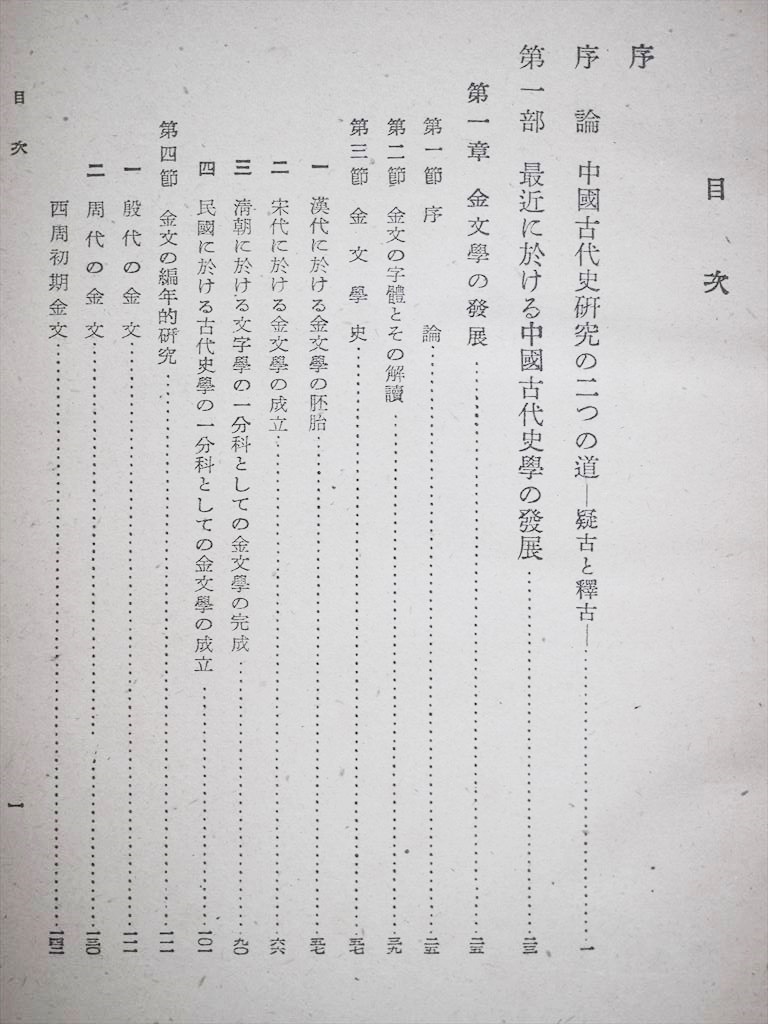 目次
序
序論 中國古代史研究の二つの道—疑古と釋古—……一
第一部 最近に於ける中國古代史學の發展……二三
第一章 金文學の發展……二五
第一節 序論……二五
第二節 金文の字體とその解讀……三九
第三節 金文學史……五七
一 漢代に於ける金文學の胚胎……五七
二 宋代に於ける金文學の成立……六六
三 清朝に於ける文字學の一分科としての金文學の完成……九〇
四 民國に於ける古代史學の一分科としての金文學の成立……一〇一
第四節 金文の編年的研究……一一一
一 殷代の金文……一一一
二 周代の金文……一三〇
西周初期金文……一四二
目次
一